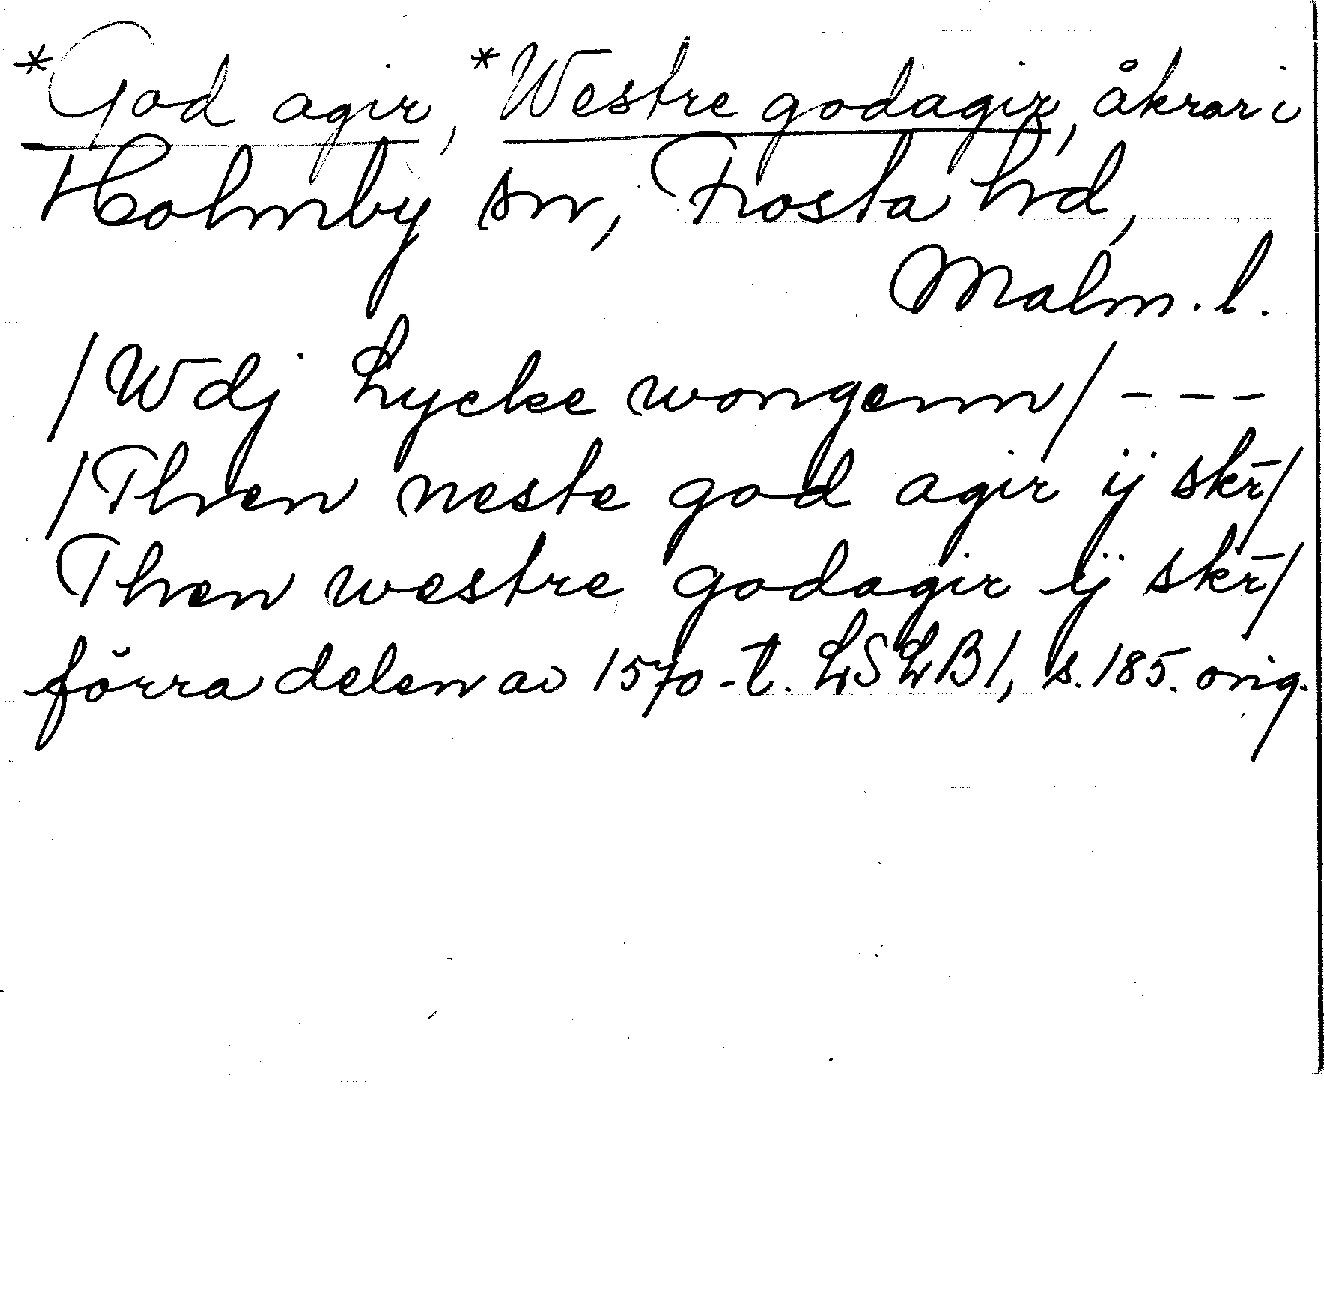 *God agir, *Westre godagir, åkrar i
Holmby sn, Frosta hd,
Malm. l.
/Wdj Lycke wongenn/ ---
/Then neste god agir ij skr̄/
Then westre godagir ij skr̄/
förra delen av 1570-t. LSLB 1, s. 185. orig.